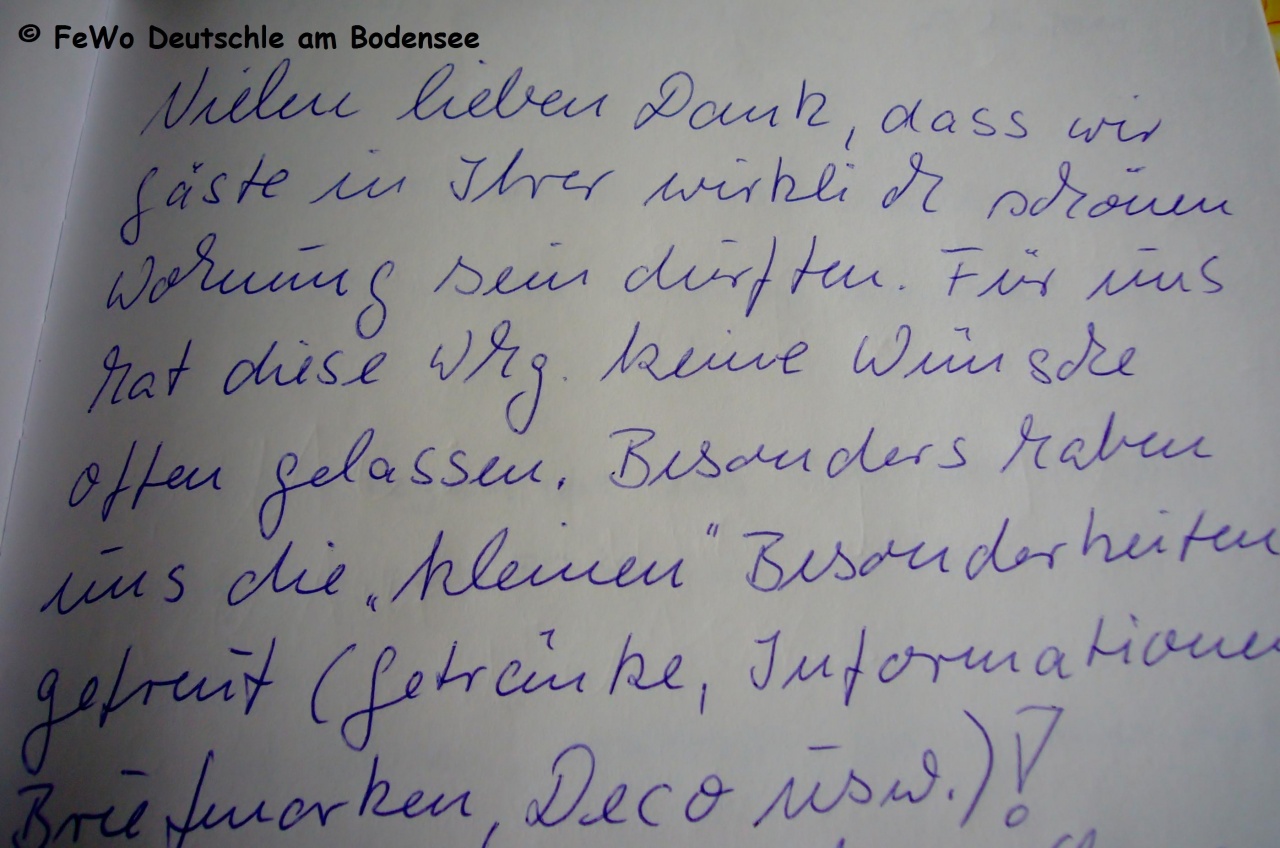 © FeWo Deutschle am Bodensee
Vielen lieben Dank, dass wir
Gäste in Ihrer wirklich schönen
Wohnung sein durften. Für uns
hat diese Whg. keine Wünsche
offen gelassen. Besonders haben
uns die „kleinen" Besonderheiten
gefreut (Getränke, Informationen
Briefmarken, Deco usw.)!